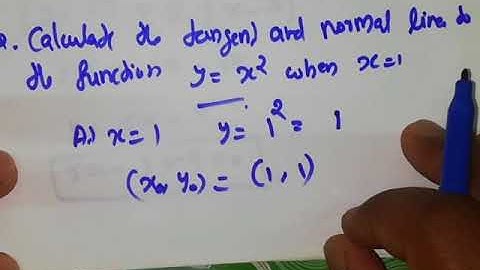 Q. Calculate the tangent and normal line to
the function y = x² when x=1
A:) x = 1 y = 1² = 1
(x₀, y₀) = (1, 1)